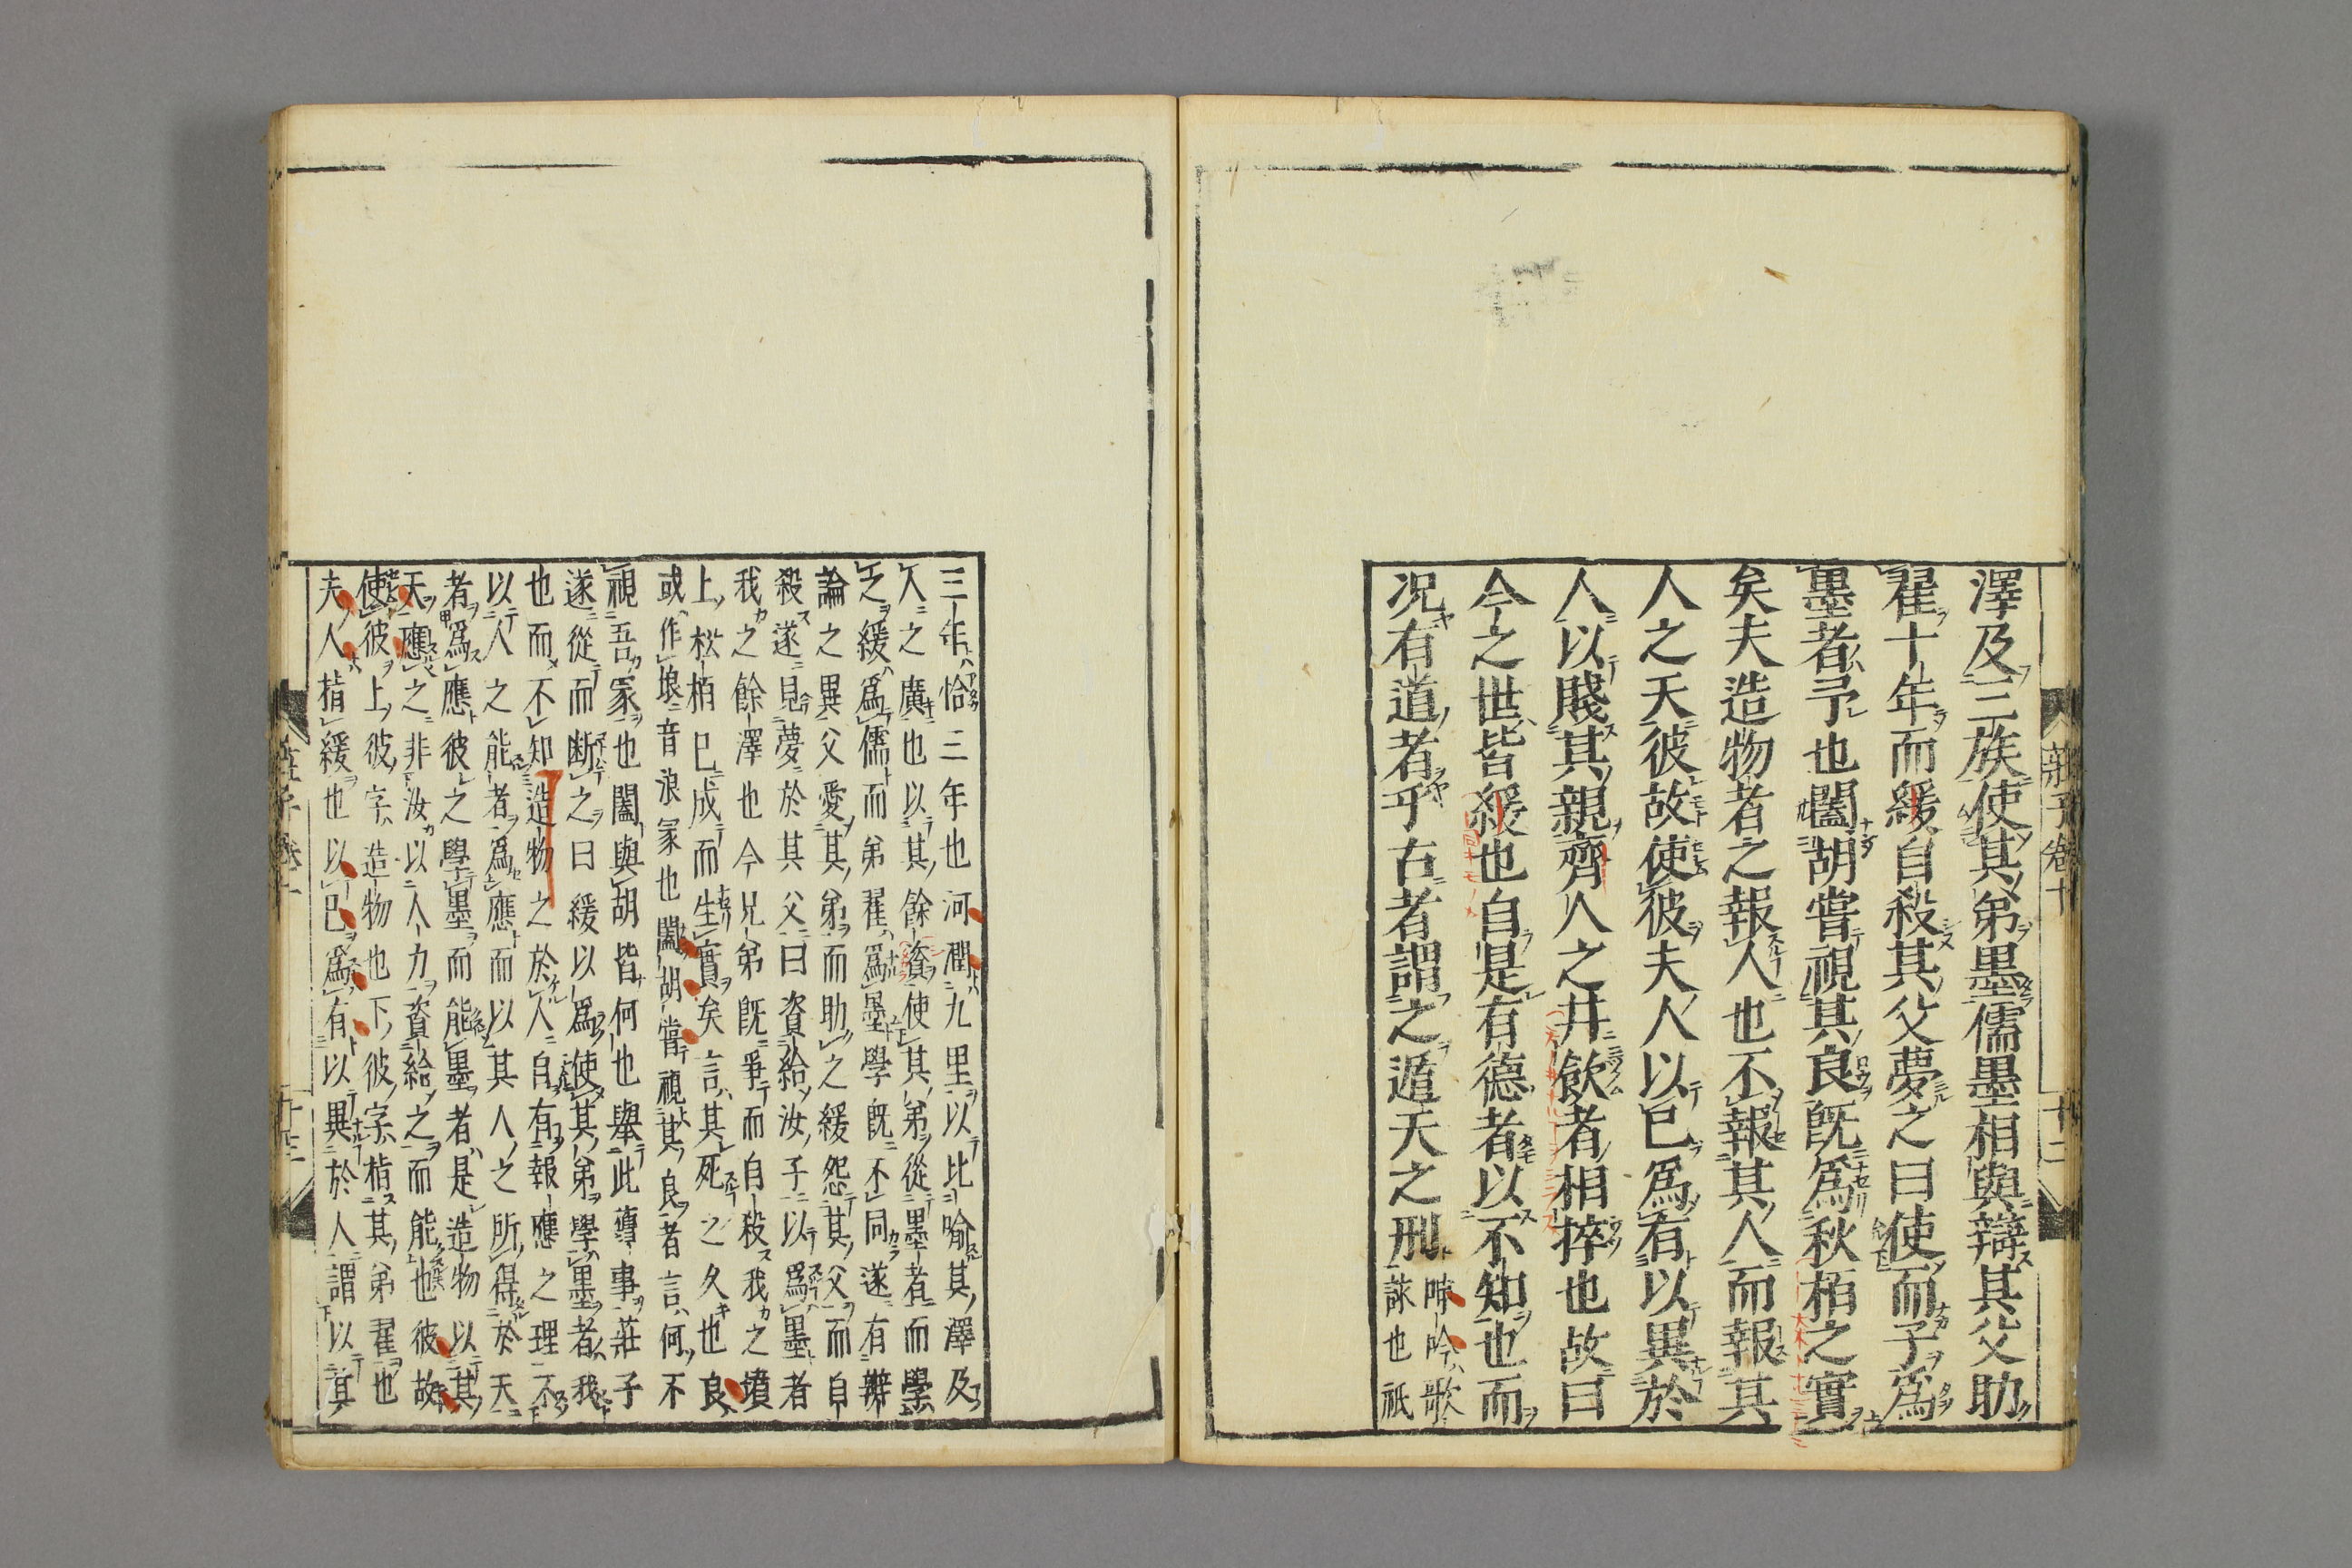 澤及三族使其弟墨儒墨相與辯其父助
翟十年而緩自殺其父夢之曰使而子爲
墨者予也闔胡嘗視其良既爲秋栢之實
矣夫造物者之報人也不報其人而報其
人之天彼故使彼夫人以巳爲有以異於
人以賤其親齊人之井飲者相捽也故曰
今之世皆緩也自是有德者以不知也而
况有道者乎古者謂之遁天之刑
呻吟歌
詠也祇
莊子卷十
十二
三年恰三年也河潤九里以比喻其澤及
人之廣也以其餘資使其弟從墨者而學
之緩爲儒而弟翟爲墨學既不同遂有辯
論之異父愛其弟而助之緩怨其父而自
殺遂見夢於其父曰資給汝子以爲墨者
我之餘澤也今兄弟既爭而自殺我之墳
上松栢巳成而生實矣言其死之久也良
或作埌音浪冢也闔胡嘗視其良者言何不
視吾冢也闔與胡皆何也舉此導事莊子
遂從而断之曰緩以爲使其弟學墨者我
也而不知造物之於人自有報應之理不
以人之能者爲應而以其人之所得於天
者爲應彼之學墨而能墨者是造物以其
天應之非汝以人力資給之而能也彼故
使彼上彼字造物也下彼字指其弟翟也
夫人指緩也以巳爲有以異於人謂以其